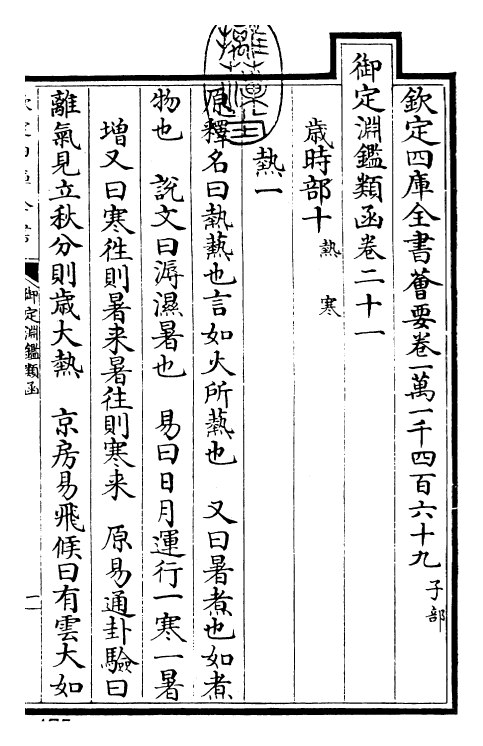 欽定四庫全書薈要卷一萬一千四百六十九 子部
御定淵鑑類函卷二十一
歲時部十 熱 寒
熱一
原釋名曰熱爇也言如火所熱也 又曰暑煮也如煮
物也 說文曰溽濕暑也 易曰日月運行一寒一暑
增又曰寒徃則暑来暑往則寒来 原易通卦驗曰
離氣見立秋分則歲大熱 京房易飛候曰有雲大如
御定淵鑑類函